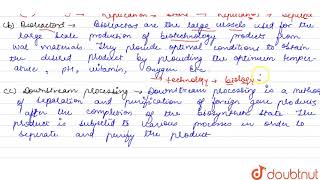 (b) Bioreactors → Bioreactors are the large vessels used for the
large scale production of biotechnology products from
raw materials. They provide optimal conditions to obtain
the desired product by providing the optimum temper-
ature, pH, vitamin, oxygen etc.
→ technology + biology =
(c) Downstream processing → Downstream processing is a method
of separation and purification of foreign gene products
after the completion of the biosynthetic state. The
product is subjected to various processes in order to
separate and purify the product
doubtnut